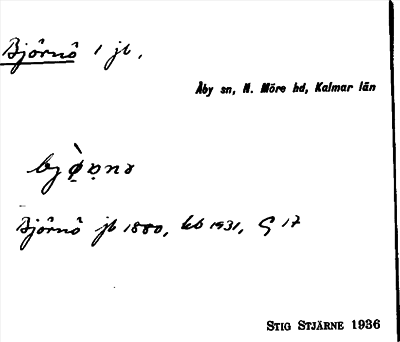 Björnö 1 jb.
Åby sn, N. Möre hd, Kalmar län
Björnö jb 1880, kb 1931, G 17
STIG STJÄRNE 1936